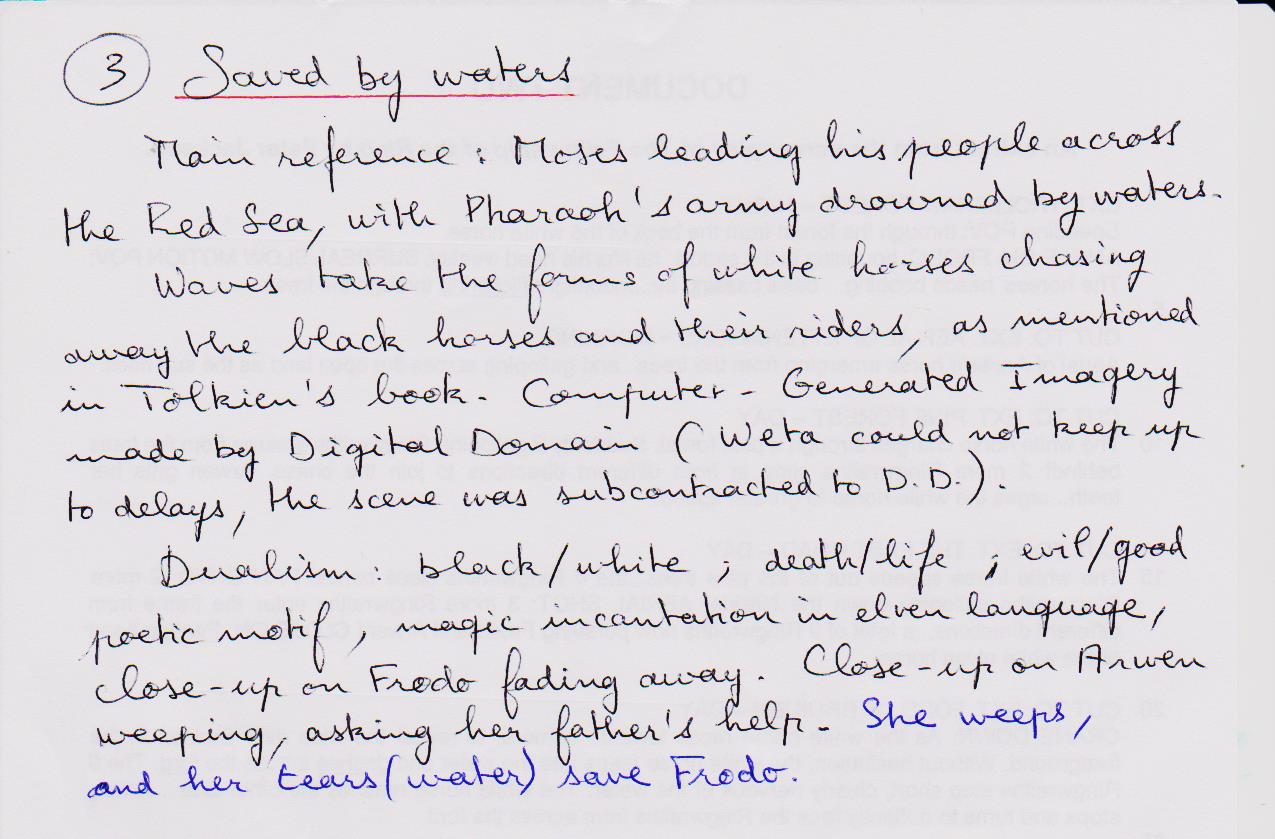 3 Saved by waters
Main reference : Moses leading his people across
the Red Sea, with Pharaoh's army drowned by waters.
Waves take the forms of white horses chasing
away the black horses and their riders, as mentioned
in Tolkien's book. Computer-Generated Imagery
made by Digital Domain (Weta could not keep up
to delays, the scene was subcontracted to D.D.).
Dualism, black/white ; death/life ; evil/good
poetic motif, magic incantation in elven language,
close-up on Frodo fading away. Close-up on Arwen
weeping, asking her father's help. She weeps,
and her tears (water) save Frodo.